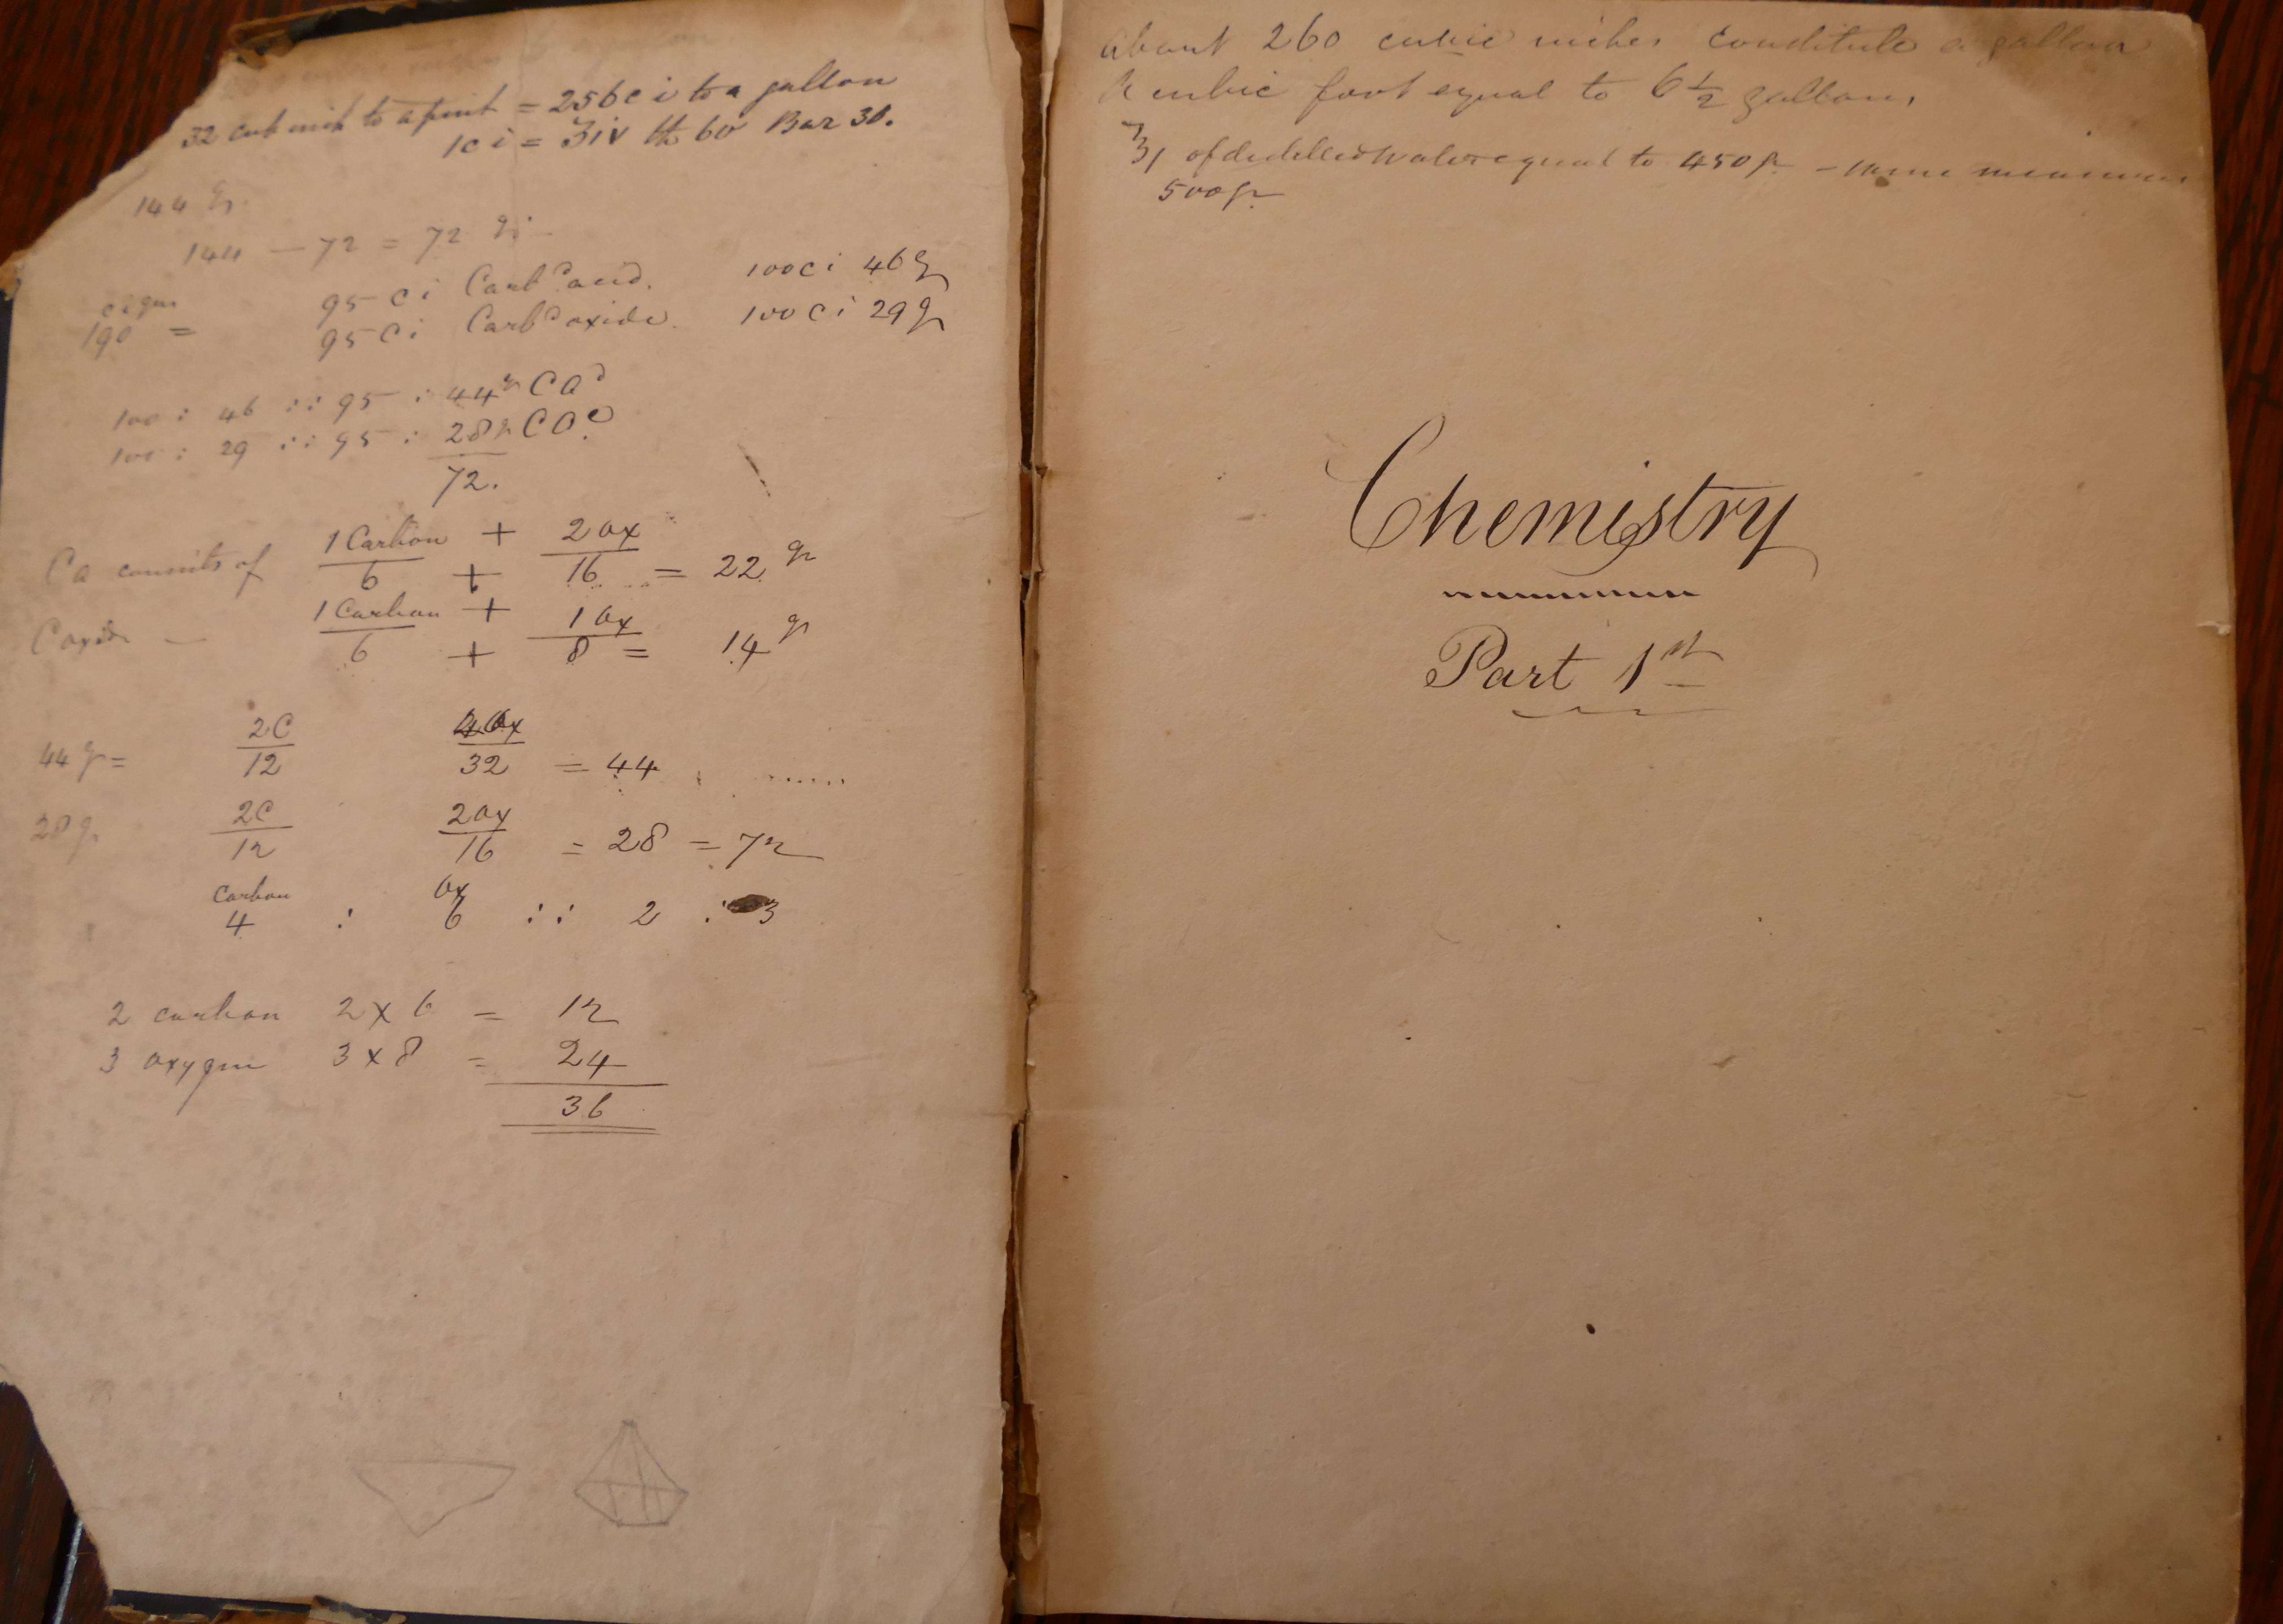 32 cub inch to a pint = 256 c i to a gallon
1 c i = ʒiv th 60 Bar 30.
144 gr.
144 — 72 = 72 gr
190 = 95 c i Carbc acid. 100 c i 46 gr
95 c i Carbc oxide. 100 c i 29 gr
100 : 46 :: 95 : 44 gr C a
100 : 29 :: 95 : 28 gr C O
72.
1 Carbon + 2 ox
Ca consists of 6 + 16 = 22 gr
1 Carbon + 1 ox
C oxide — 6 + 8 = 14 gr
2C 4 Ox
44 gr = 12 32 = 44
2C 2 ox
28 gr. 12 16 = 28 = 72
carbon ox
4 : 6 :: 2 : 3
2 carbon 2 x 6 = 12
3 oxygen 3 x 8 = 24
36
About 260 cubic inches constitute a gallon
A cubic foot equal to 6 1/2 gallons,
℥1 of distilled water equal to 450 gr – same measure
500 gr
Chemistry
Part 1st